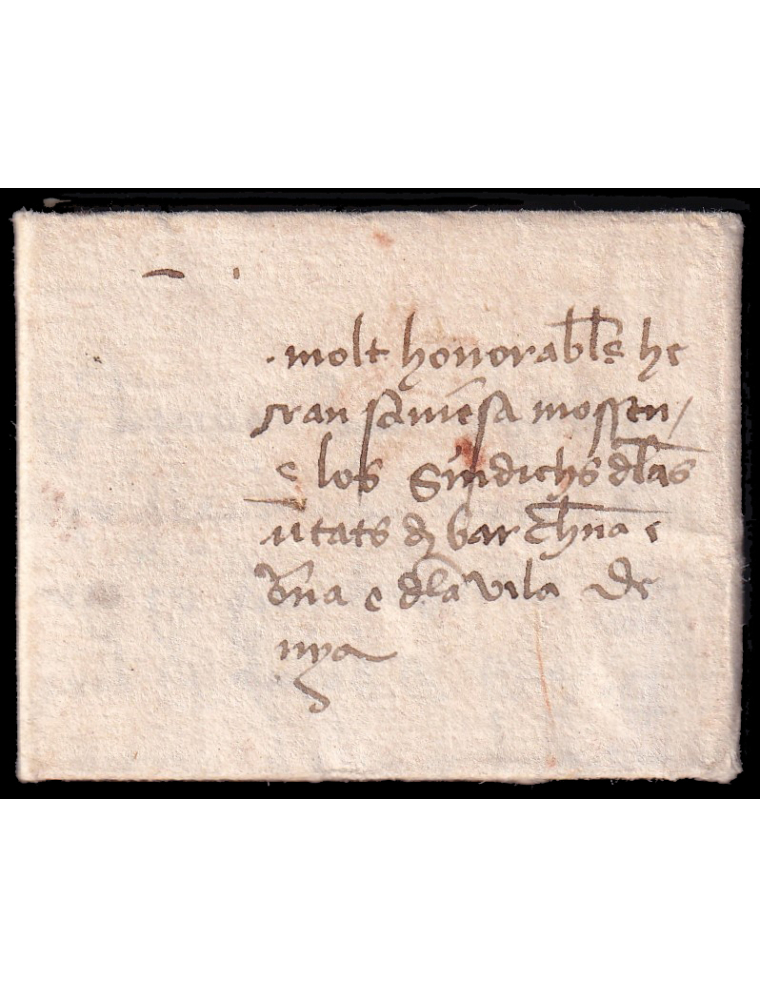 molt honorabls he
gran saviesa mossen
e los Sindichs dlas
utats d barchna e
Gna e dla vila de
nya